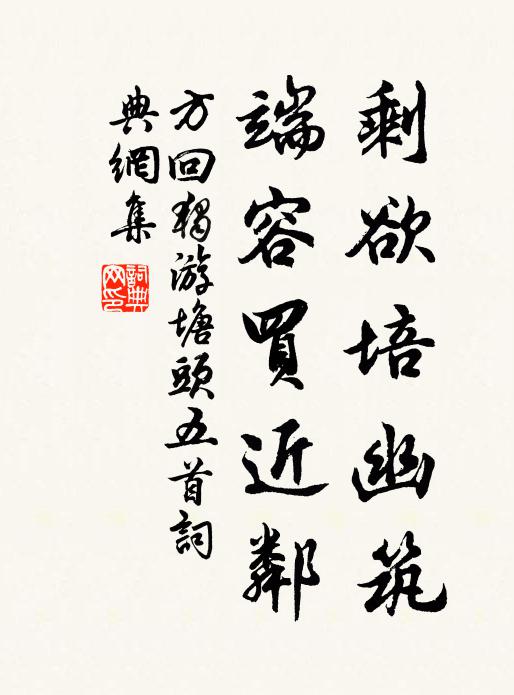 剩欲培幽筑
端容買近鄰
方回獨游塘頭五首詞
典網集
詞典網印